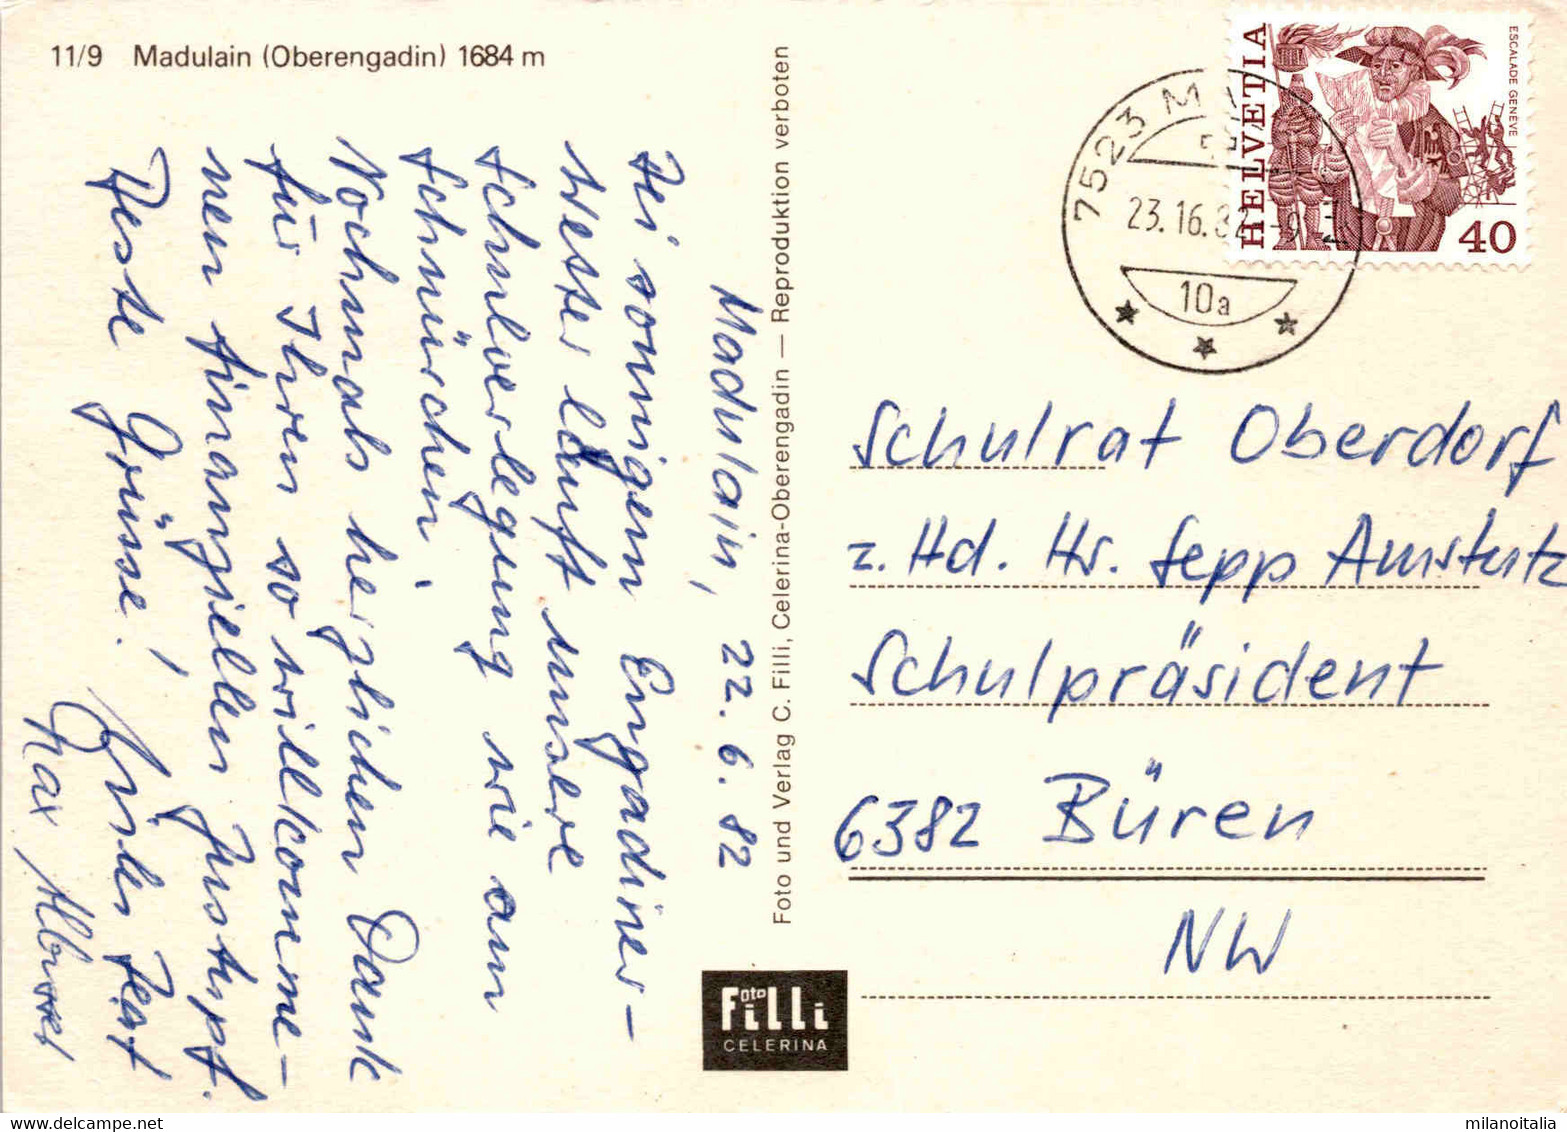 11/9 Madulain (Oberengadin) 1684 m
Madulain, 22. 6. 82
Bei sonnigem Engadiner-
wetter läuft unsere
Schulverlegung wie am
Schnürchen.
Nochmals herzlichen Dank
für Ihren so willkomme-
nen finanziellen Zustupf.
Beste Grüsse!
Max
Foto und Verlag C. Filli, Celerina-Oberengadin — Reproduktion verboten
Foto
Filli
CELERINA
HELVETIA
ESCALADE GENEVE
40
7523 M
23. 16. 82 -9
10a
Schulrat Oberdorf
z. Hd. Hr. Sepp Amstutz
Schulpräsident
6382 Büren
NW
milanoitalia